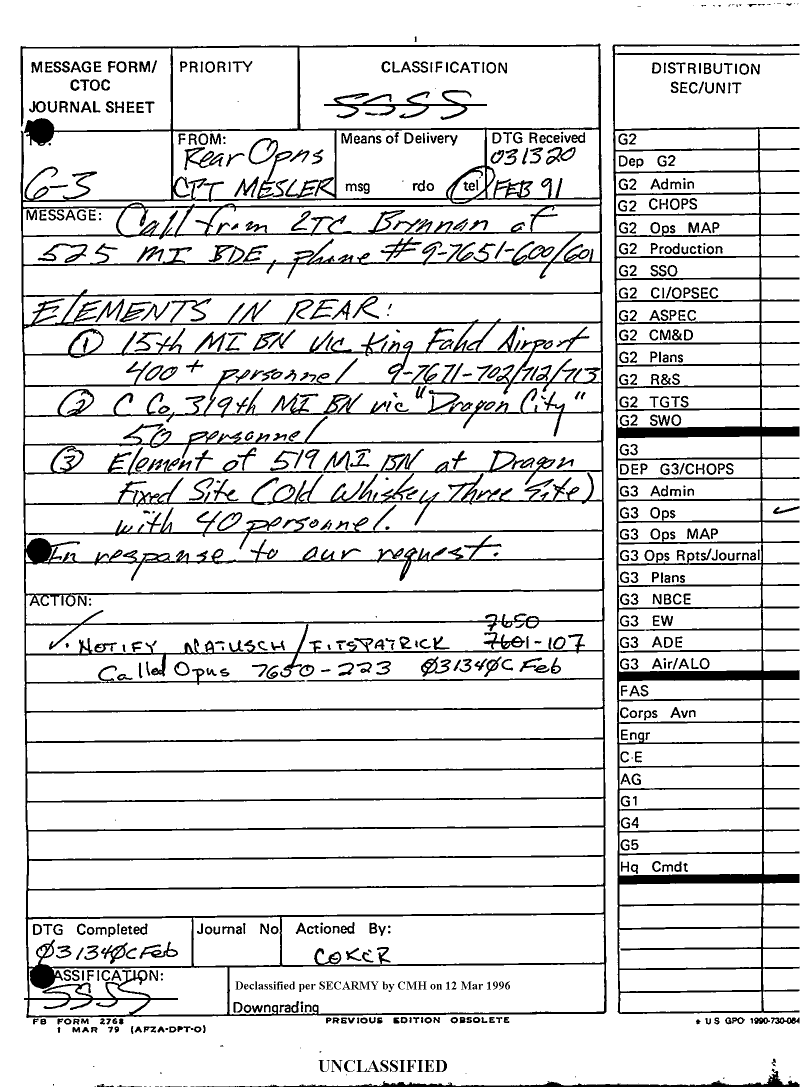 MESSAGE FORM/
CTOC
JOURNAL SHEET
PRIORITY
CLASSIFICATION
SSSS
TO:
G-3
FROM:
Rear Opns
CPT MESLER
Means of Delivery
msg rdo tel
DTG Received
031320
FEB 91
MESSAGE: Call from LTC Brynnan of
525 MI BDE, phone # 9-7651-600/601
ELEMENTS IN REAR:
① 15th MI BN vic King Fahd Airport
400+ personnel 9-7671-702/712/713
② C Co, 319th MI BN vic "Dragon City"
50 personnel
③ Element of 519 MI BN at Dragon
Fixed Site (Old Whiskey Three Site)
with 40 personnel.
In response to our request.
ACTION:
7650
✓. NOTIFY MATUSCH/FITSPATRICK 7601-107
Called Opns 7650-223 Ø3134ØC Feb
DTG Completed
Ø3134ØC Feb
Journal No
Actioned By:
COKER
CLASSIFICATION:
SSSS
Declassified per SECARMY by CMH on 12 Mar 1996
Downgrading
FB FORM 2768
1 MAR 79 (AFZA-DPT-O)
PREVIOUS EDITION OBSOLETE
DISTRIBUTION
SEC/UNIT
G2
Dep G2
G2 Admin
G2 CHOPS
G2 Ops MAP
G2 Production
G2 SSO
G2 CI/OPSEC
G2 ASPEC
G2 CM&D
G2 Plans
G2 R&S
G2 TGTS
G2 SWO
G3
DEP G3/CHOPS
G3 Admin
G3 Ops ✓
G3 Ops MAP
G3 Ops Rpts/Journal
G3 Plans
G3 NBCE
G3 EW
G3 ADE
G3 Air/ALO
FAS
Corps Avn
Engr
C-E
AG
G1
G4
G5
Hq Cmdt
* US GPO 1990-730-084
UNCLASSIFIED